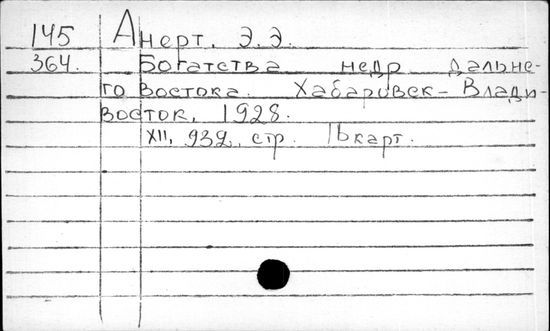 145 Анерт. Э.Э.
364. Богатства недр дальне-
го Востока. Хабаровск-Влади-
восток, 1928.
XII, 932, стр. 16 карт.